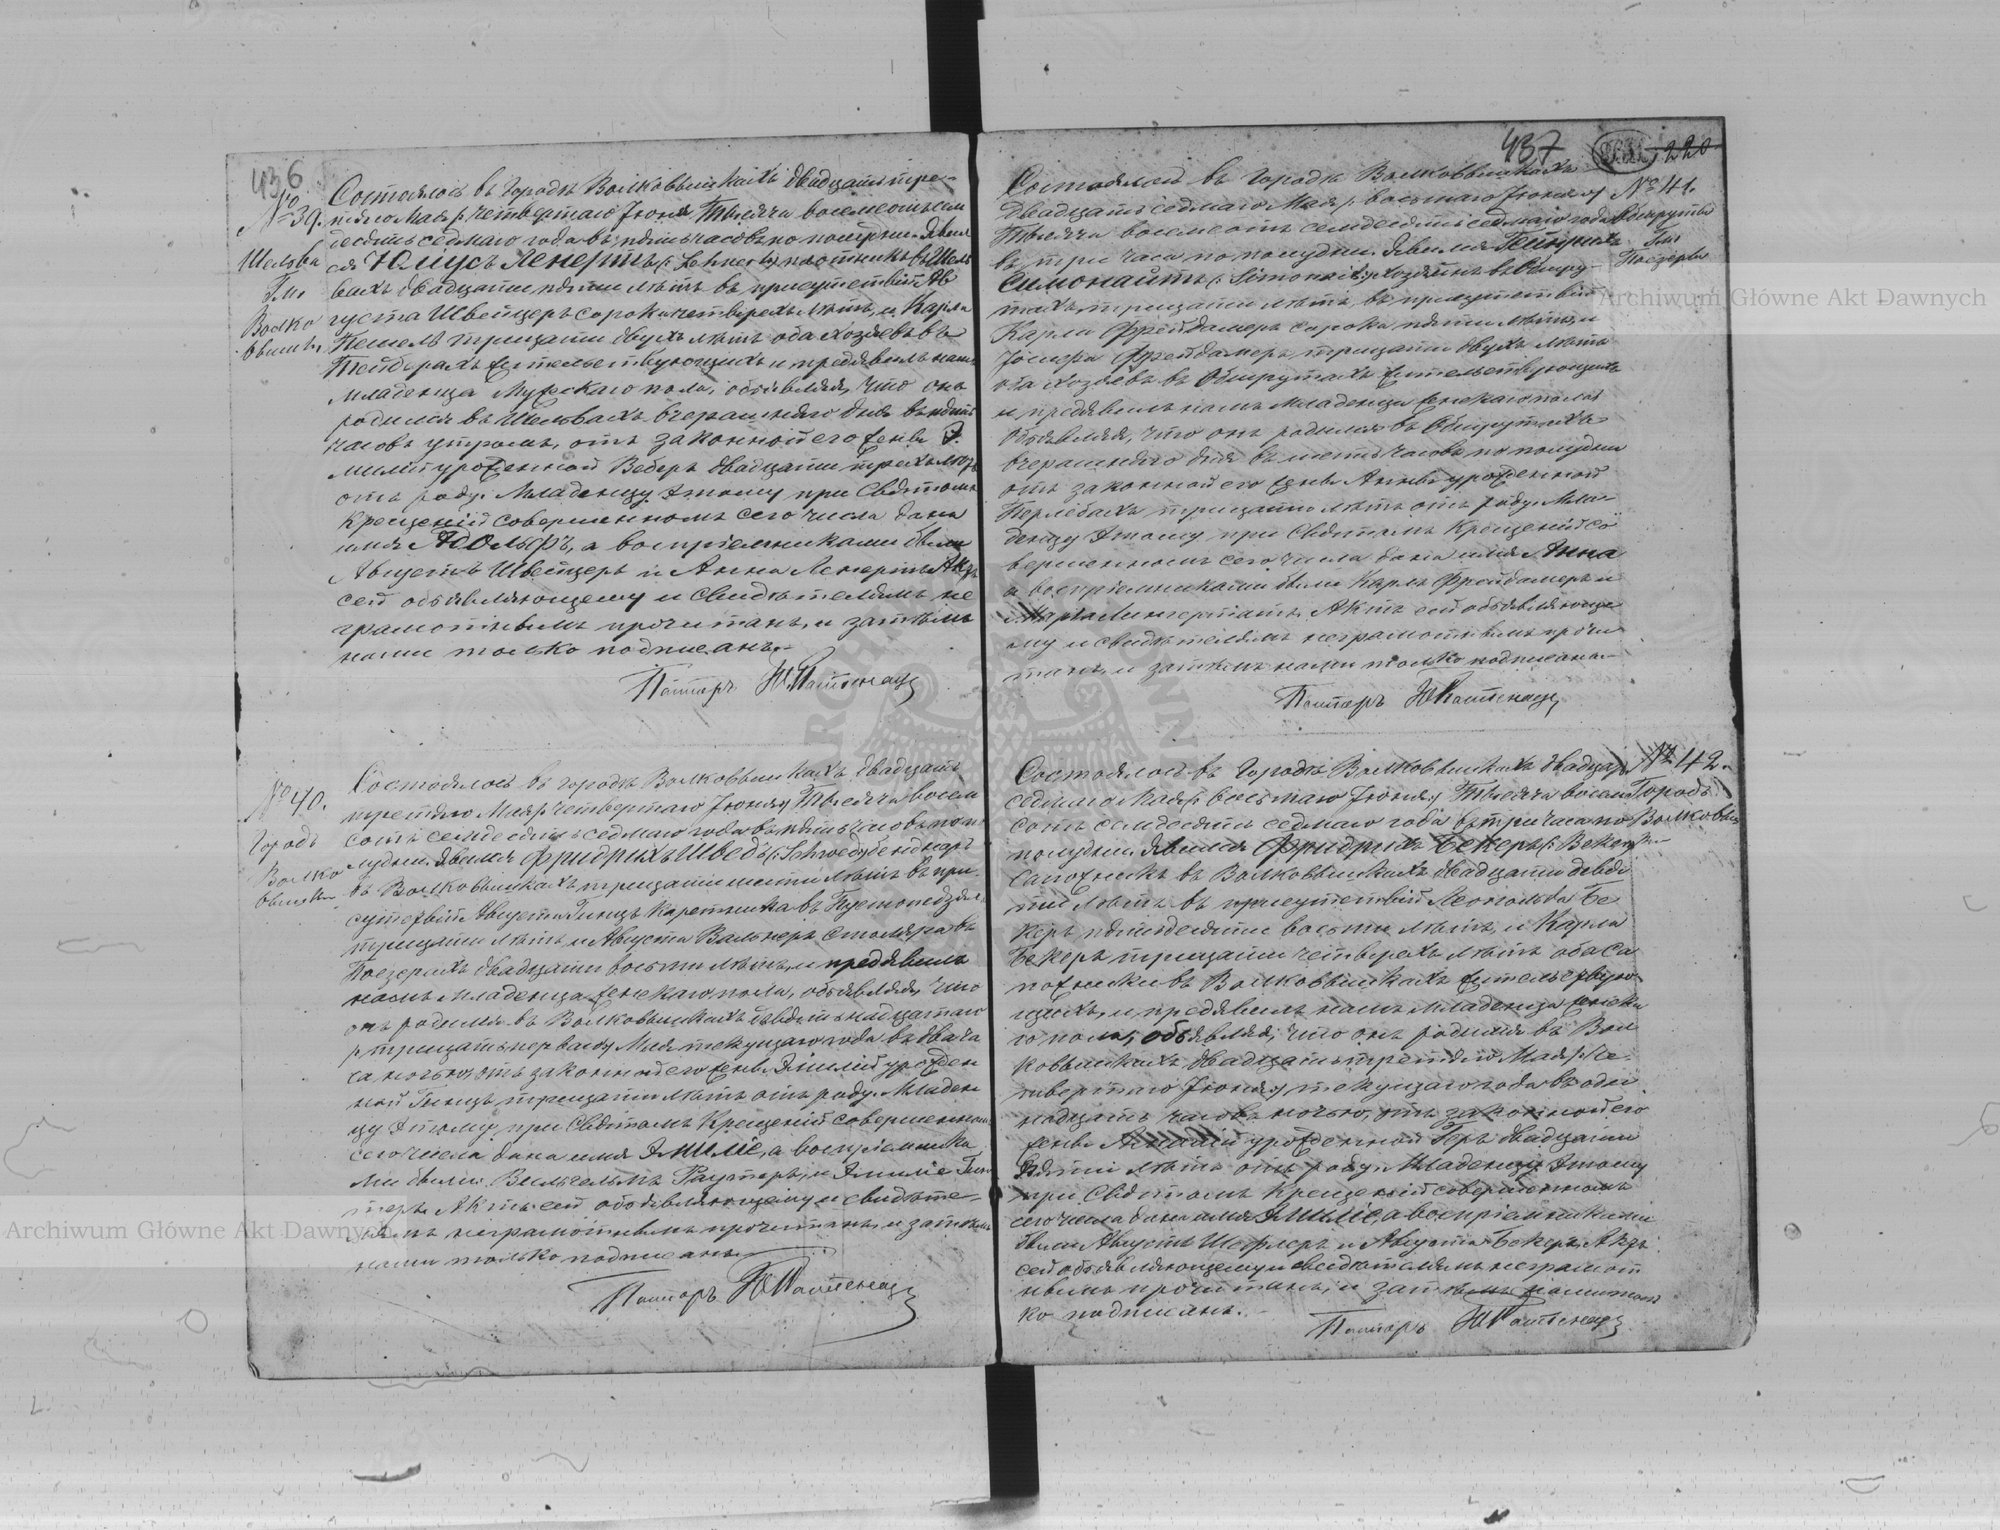 436
№ 39.
Шельвы
Гм.
Волко
вышки
Состоялось въ городѣ Волковышкахъ двадцать тре-
тьяго Мая /: четвертаго Іюня :/ Тысяча восемьсотъ семь
десятъ седмаго года въ пять часовъ по полудни. Явил
ся Юлiусъ Ленертъ (: Lehnert :) плотникъ въ Шель
вахъ двадцати пяти лѣтъ въ присутствiи Ав
густа Швейцеръ сорока четырехъ лѣтъ, и Карла
тридцати двухъ лѣтъ оба хозяевъ въ
жительствующихъ и предявилъ намъ
младенца Мужскаго пола, объявляя, что онъ
родился въ Шельвахъ вчерашняго дня въ пять
часовъ утромъ, отъ законной его жены
урожденной Веберъ двадцати трехъ лѣтъ
отъ роду. Младенцу этому при Святомъ
Крещенiи совершенномъ сего числа дано
имя Адольфъ, а воспрiемниками были
Августъ Швейцеръ и Анна Ленертъ. Актъ
сей объявляющему и свидѣтелямъ не
грамотнымъ прочитанъ, и затѣмъ
нами только подписанъ.
Пасторъ
№ 40.
Городъ
Волко
вышки
Состоялось въ городѣ Волковышкахъ двадцать
третяго Мая /: четвертаго Іюня :/ Тысяча восемь
сотъ семьдесятъ седмаго года въ пять часовъ по по
лудни. Явился Фридрихъ Шведъ (: Schwed :)
въ Волковышкахъ тридцати шести лѣтъ въ при
сутствiи Августа Гинцъ въ
тридцати лѣтъ и Августа Вальнеръ столяра въ
Поезерахъ двадцати восьми лѣтъ, и предявилъ
намъ младенца женскаго пола, объявляя, что
онъ родился въ Волковышкахъ девятьнадцатаго
/: тридцать перваго :/ Мая текущаго года въ два ча
са ночью, отъ законной его жены Эмилiи урожден
ной Гинцъ тридцати лѣтъ отъ роду. Младен
цу этому при Святомъ Крещенiи совершенномъ
сего числа дано имя Эмилiе, а воспрiемника
ми были Вильгельмъ и Эмилiе
Актъ сей объявляющему и свидѣте-
лямъ неграмотнымъ прочитанъ, и затѣмъ
нами только подписанъ
Пасторъ
437
220
№ 41.
Обшруты
Гм.
Поезеры
Состоялось въ городѣ Волковышкахъ
двадцать седмаго Мая /: восьмаго Іюня :/
Тысяча восемсотъ семдесятъ седмаго года
въ три часа по полудни. Явился Гейнрихъ
Симонайтъ (: Simoneit :) хозяинъ въ Обшру-
тахъ, тридцати лѣтъ, въ присутствiи
Карла Фрейдамеръ сорока пяти лѣтъ, и
Фрейдамеръ тридцати двухъ лѣтъ
оба хозяевъ въ Обшрутахъ жительствующихъ
и предявилъ намъ младенца женскаго пола
объявляя, что онъ родился въ Обшрутахъ
вчерашняго дня въ шесть часовъ по полудни
отъ законной его жены Анны урожденной
Перлебахъ тридцати лѣтъ отъ роду. Мла-
денцу этому при Святомъ Крещенiи со
вершенномъ сего числа дано имя Анна
а воспрiемниками были Карлъ Фрейдамеръ и
Актъ сей объявляюще
му и свидѣтелямъ неграмотнымъ прочи
танъ, и затѣмъ нами только подписанъ
Пасторъ
№ 42.
Городъ
Волковыш
Состоялось въ городѣ Волковышкахъ двадцать
седмаго Мая /: восьмаго Іюня :/ Тысяча восем
сотъ семдесятъ седмаго года въ три часа по
полудни. Явился Фридрихъ Бекеръ (: Beker :)
Сапожникъ въ Волковышкахъ двадцати девя
ти лѣтъ въ присутствiи Леопольда Бе
керъ пятидесяти восьми лѣтъ, и Карла
Бекеръ тридцати четырехъ лѣтъ оба са
пожники въ Волковышкахъ жительствую
щихъ, и предявилъ намъ младенца женска
го пола, объявляя, что онъ родился въ Вол
ковышкахъ двадцать третяго Мая /: че
твертаго Іюня :/ текущаго года въ оди
надцать часовъ ночью, отъ законной его
жены урожденной Геръ двадцати
пяти лѣтъ отъ роду. Младенцу этому
при Святомъ Крещенiи совершенномъ
сего числа дано имя Эмилiе, а воспрiемниками
были Августъ Шефлеръ и Августа Бекеръ. Актъ
сей объявляющему и свидѣтелямъ неграмот
нымъ прочитанъ, и затѣмъ нами толь
ко подписанъ.
Пасторъ
Archiwum Główne Akt Dawnych
Archiwum Główne Akt Dawnych